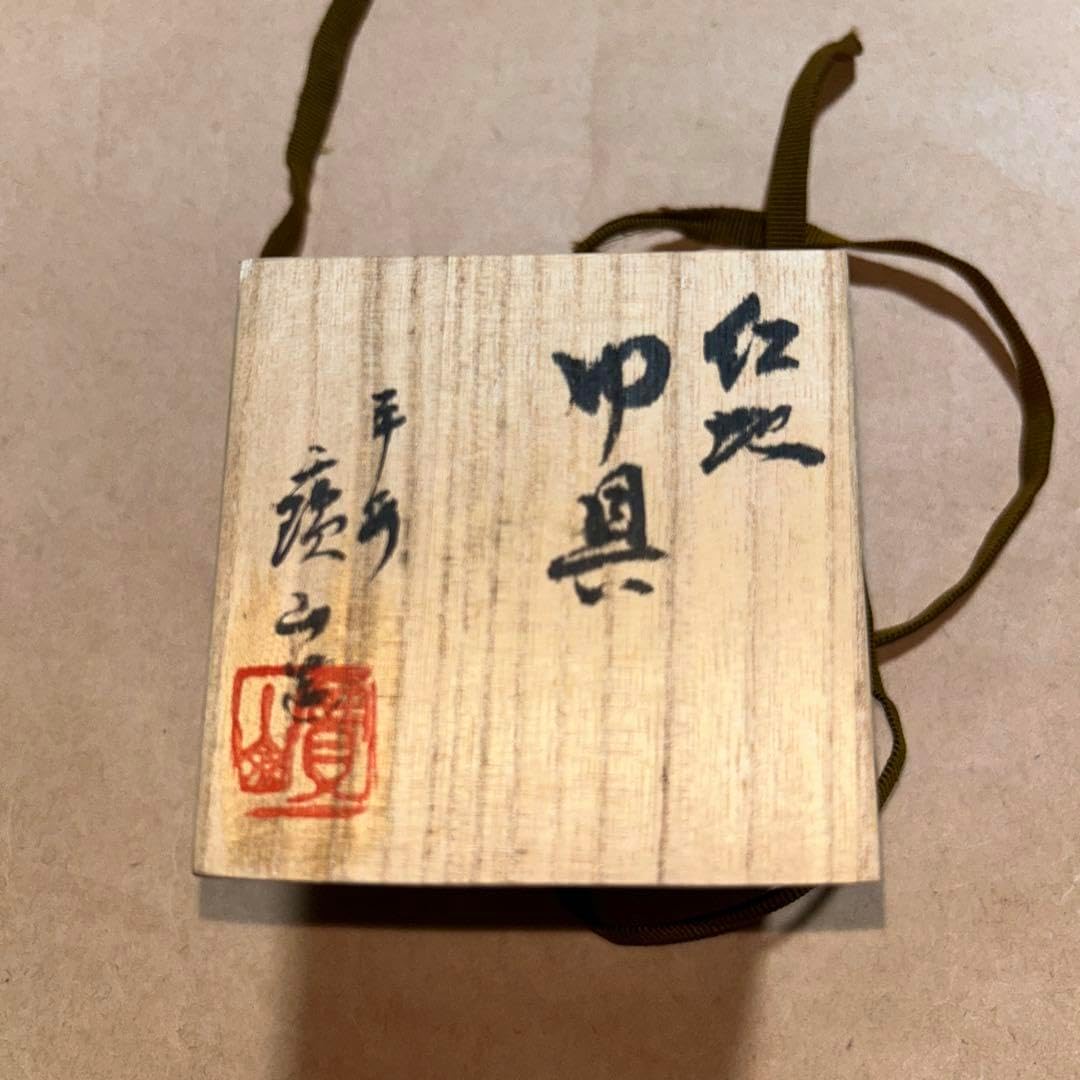 紅地
印具
平安
山造